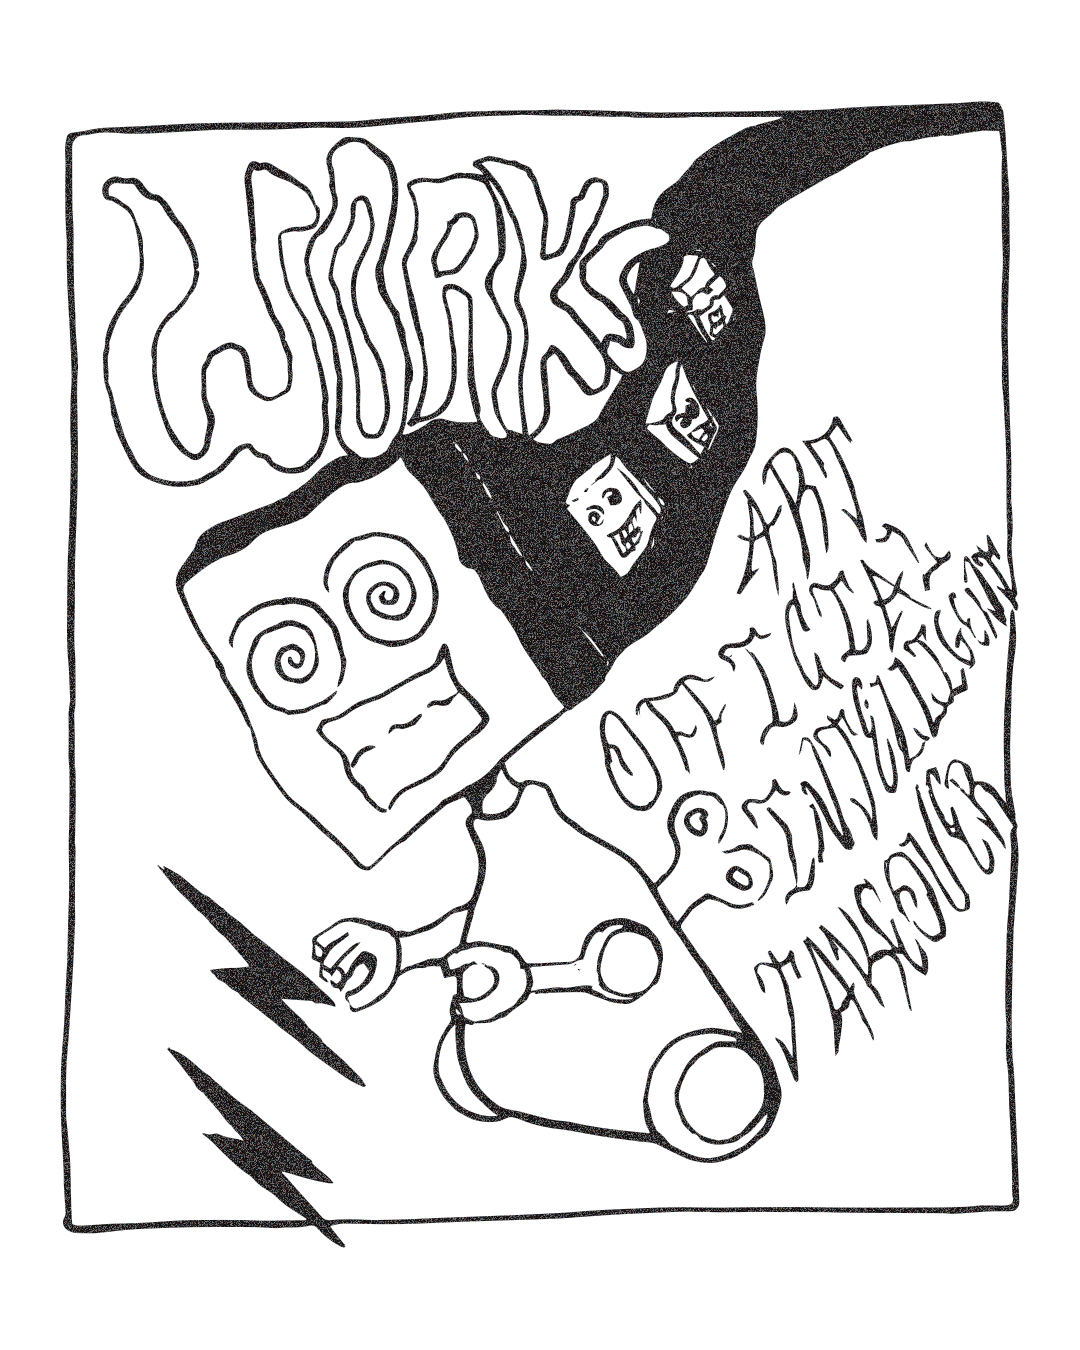 WORKS
ART
OFFICIAL
INTELLIGENT
TAKEOVER